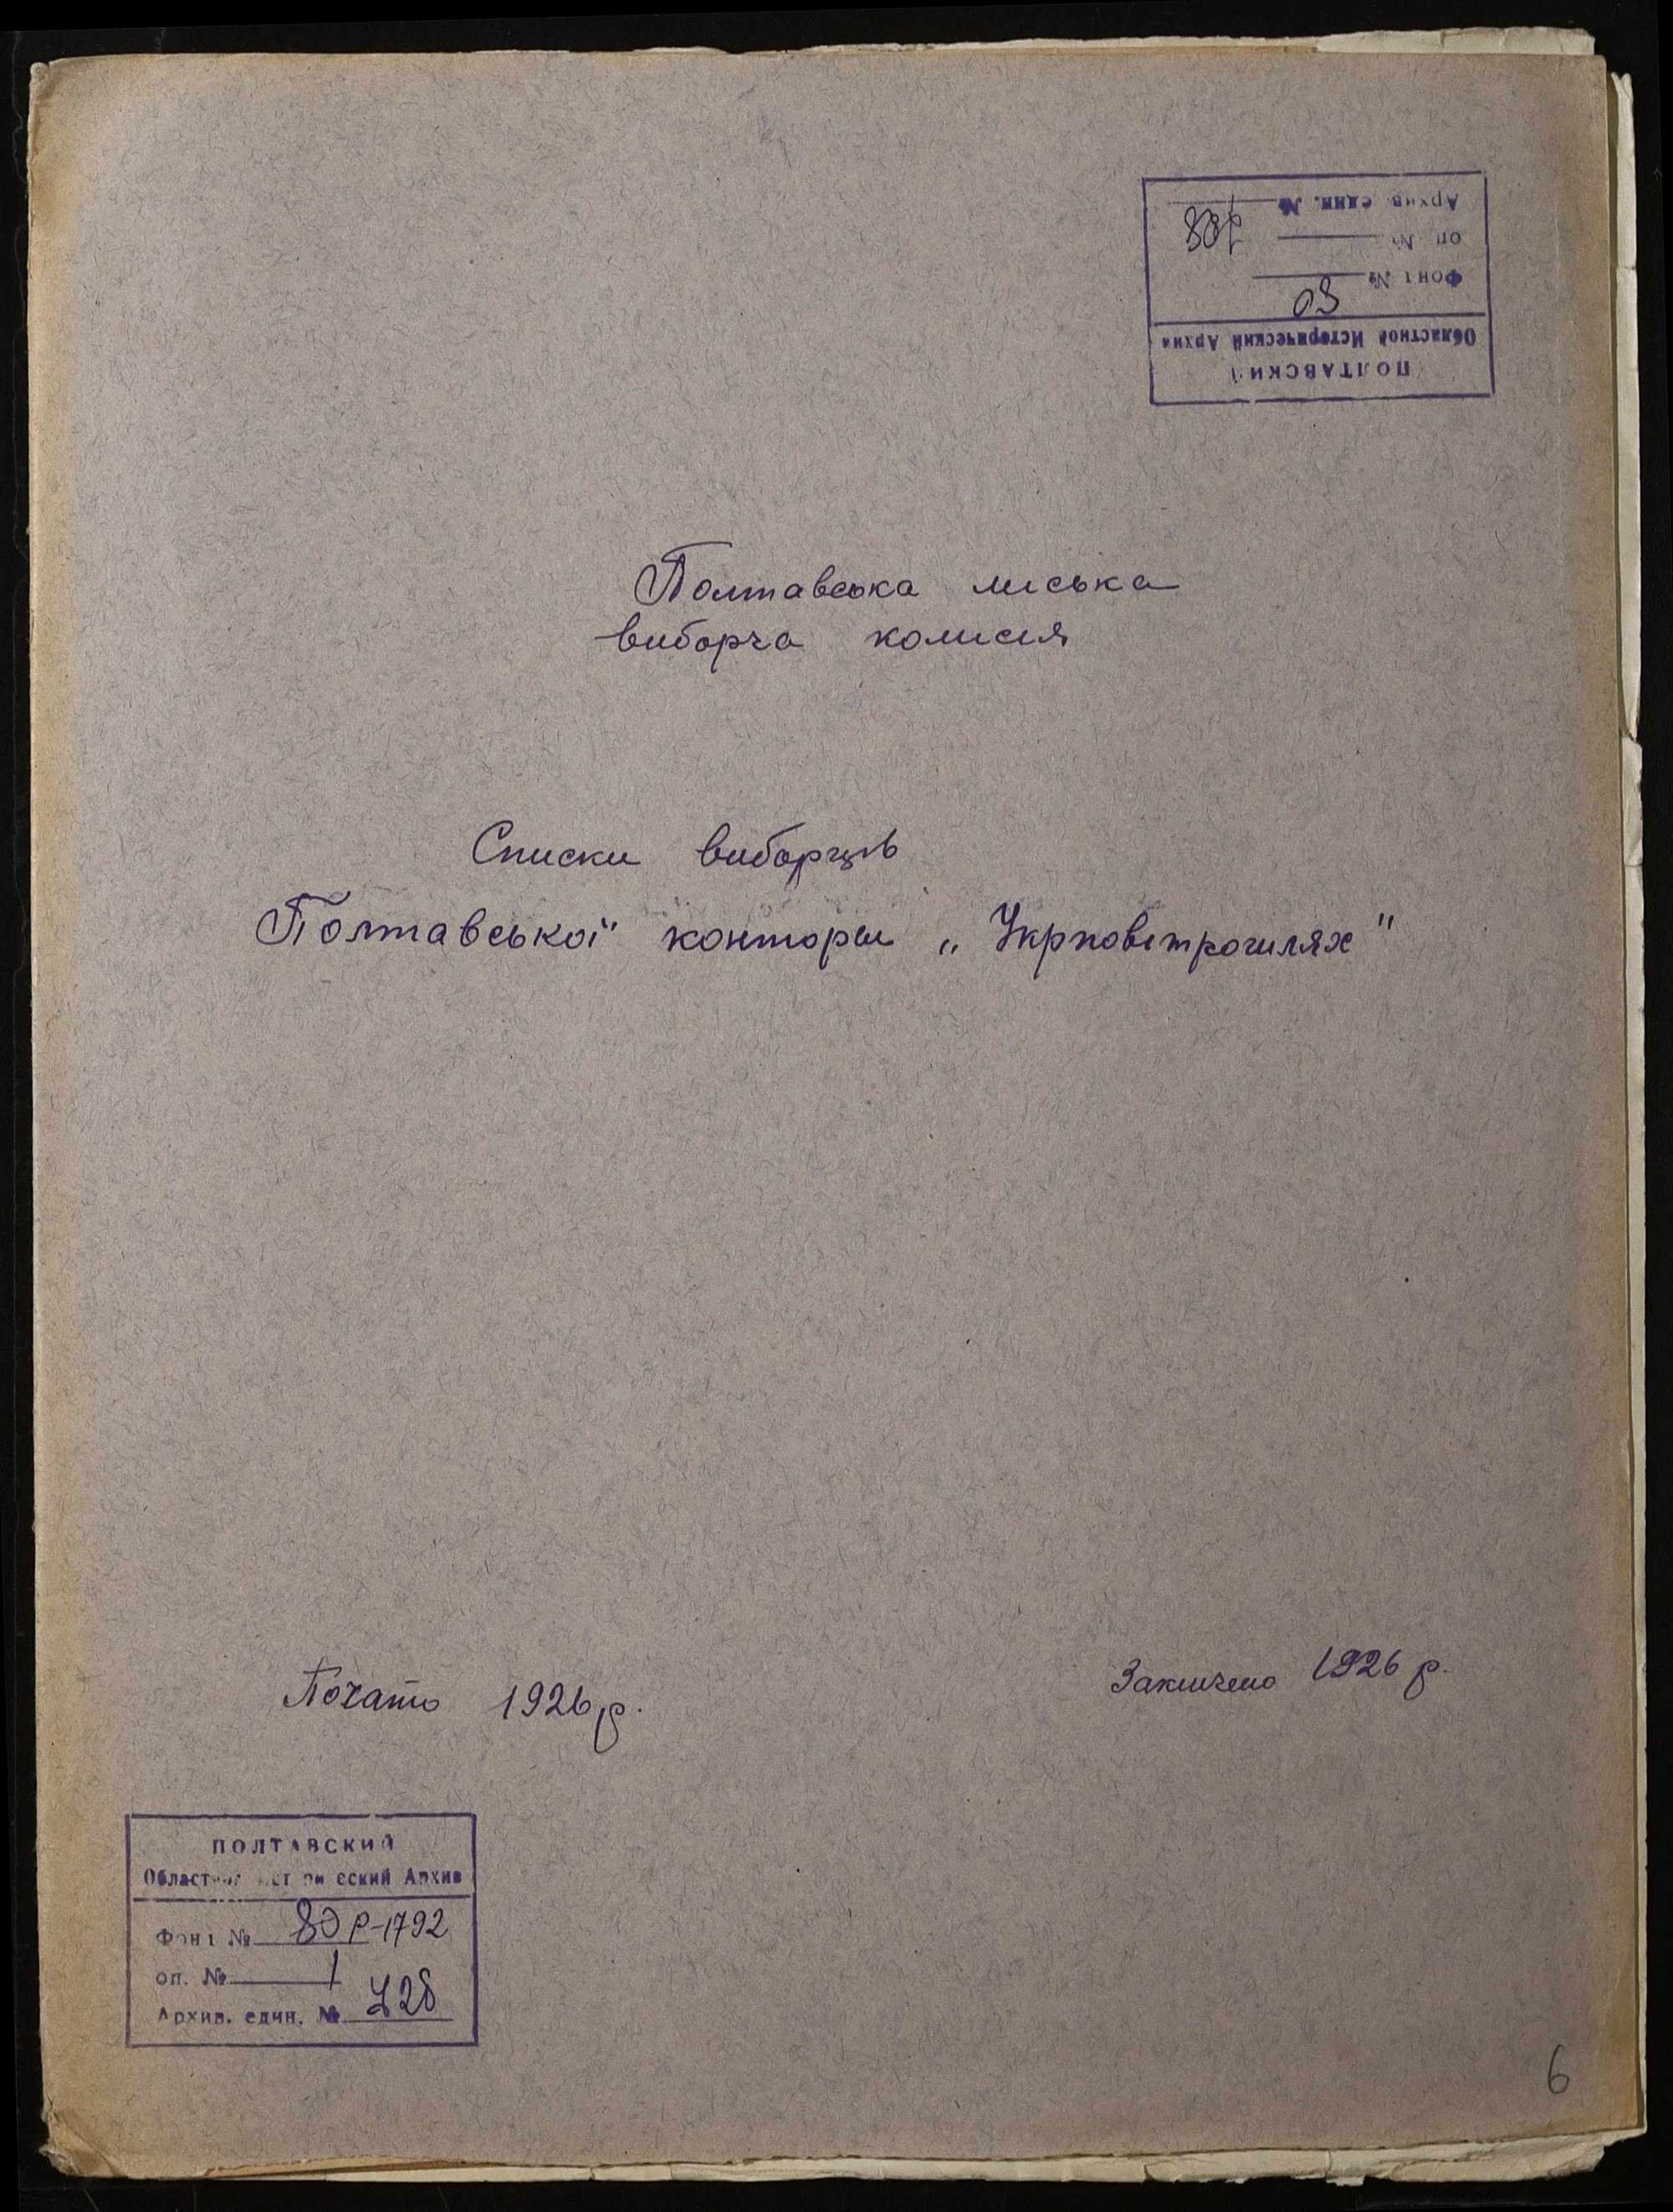 ПОЛТАВСКИЙ
Областной Исторический Архив
Фонд № 80
оп. №
Архив. един. №
Полтавська міська
виборча комісія
Списки виборців
Полтавської контори „Укрповітрошлях"
Почато 1926 р.
Закінчено 1926 р.
ПОЛТАВСКИЙ
Областной Исторический Архив
Фонд № 80 Р-1792
оп. № 1
Архив. един. № 728
6